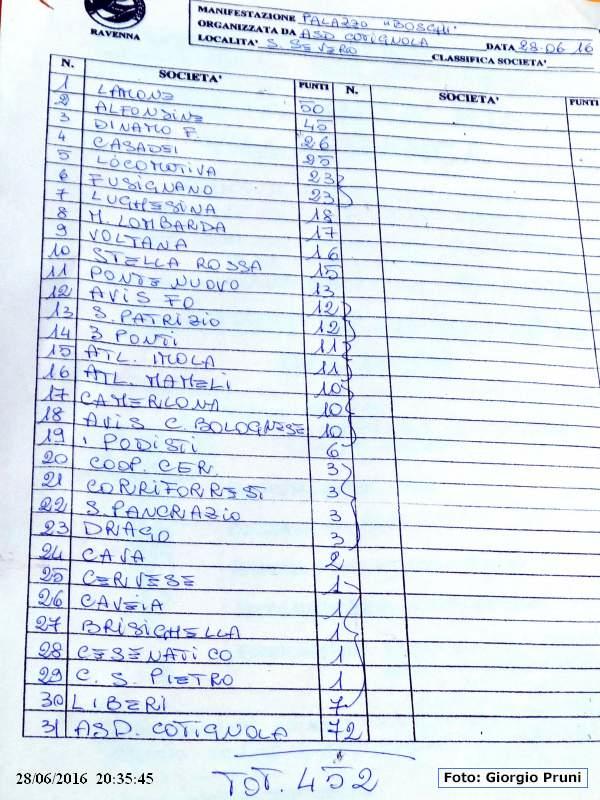 RAVENNA
MANIFESTAZIONE PALAZZO "BOSCHI"
ORGANIZZATA DA ASD COTIGNOLA DATA 28-06 16
LOCALITA' S. SEVERO CLASSIFICA SOCIETA'
N. SOCIETA' PUNTI N. SOCIETA' PUNTI
1 LAMONE 50
2 ALFONSINE 45
3 DINAMO F. 26
4 CASADEI 25
5 LOCOMOTIVA 23
6 FUSIGNANO 23
7 LUGHESINA 18
8 M. LOMBARDA 17
9 VOLTANA 16
10 STELLA ROSSA 15
11 PONTE NUOVO 13
12 AVIS FO 12
13 S. PATRIZIO 12
14 3 PONTI 11
15 ATL. IMOLA 11
16 ATL. MAMELI 10
17 CAMERLONA 10
18 AVIS C. BOLOGNESE 10
19 I PODISTI 6
20 COOP. CER. 3
21 CORRIFORRESI 3
22 S. PANCRAZIO 3
23 DRAGO 3
24 CAVA 2
25 CERVESE 1
26 CAVEIA 1
27 BRISIGHELLA 1
28 CESENATICO 1
29 C. S. PIETRO 1
30 LIBERI 7
31 ASD. COTIGNOLA 72
TOT. 452
28/06/2016 20:35:45
Foto: Giorgio Pruni